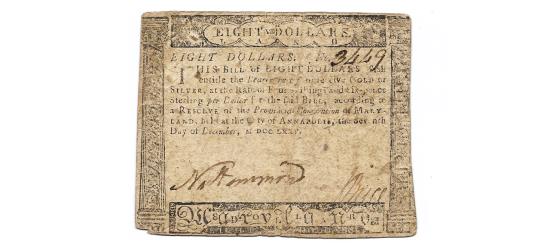 EIGHT DOLLARS.
EIGHT DOLLARS. No 3449
THIS BILL of EIGHT DOLLARS shall
entitle the Bearer to receive GOLD or
SILVER, at the Rate of Four Shillings and Six-pence
Sterling per Dollar for the said BILL, according to
a RESOLVE of the Provincial Convention of MARY-
LAND, held at the City of ANNAPOLIS, the Seventh
Day of December, MDCCLXXV.
Hammond